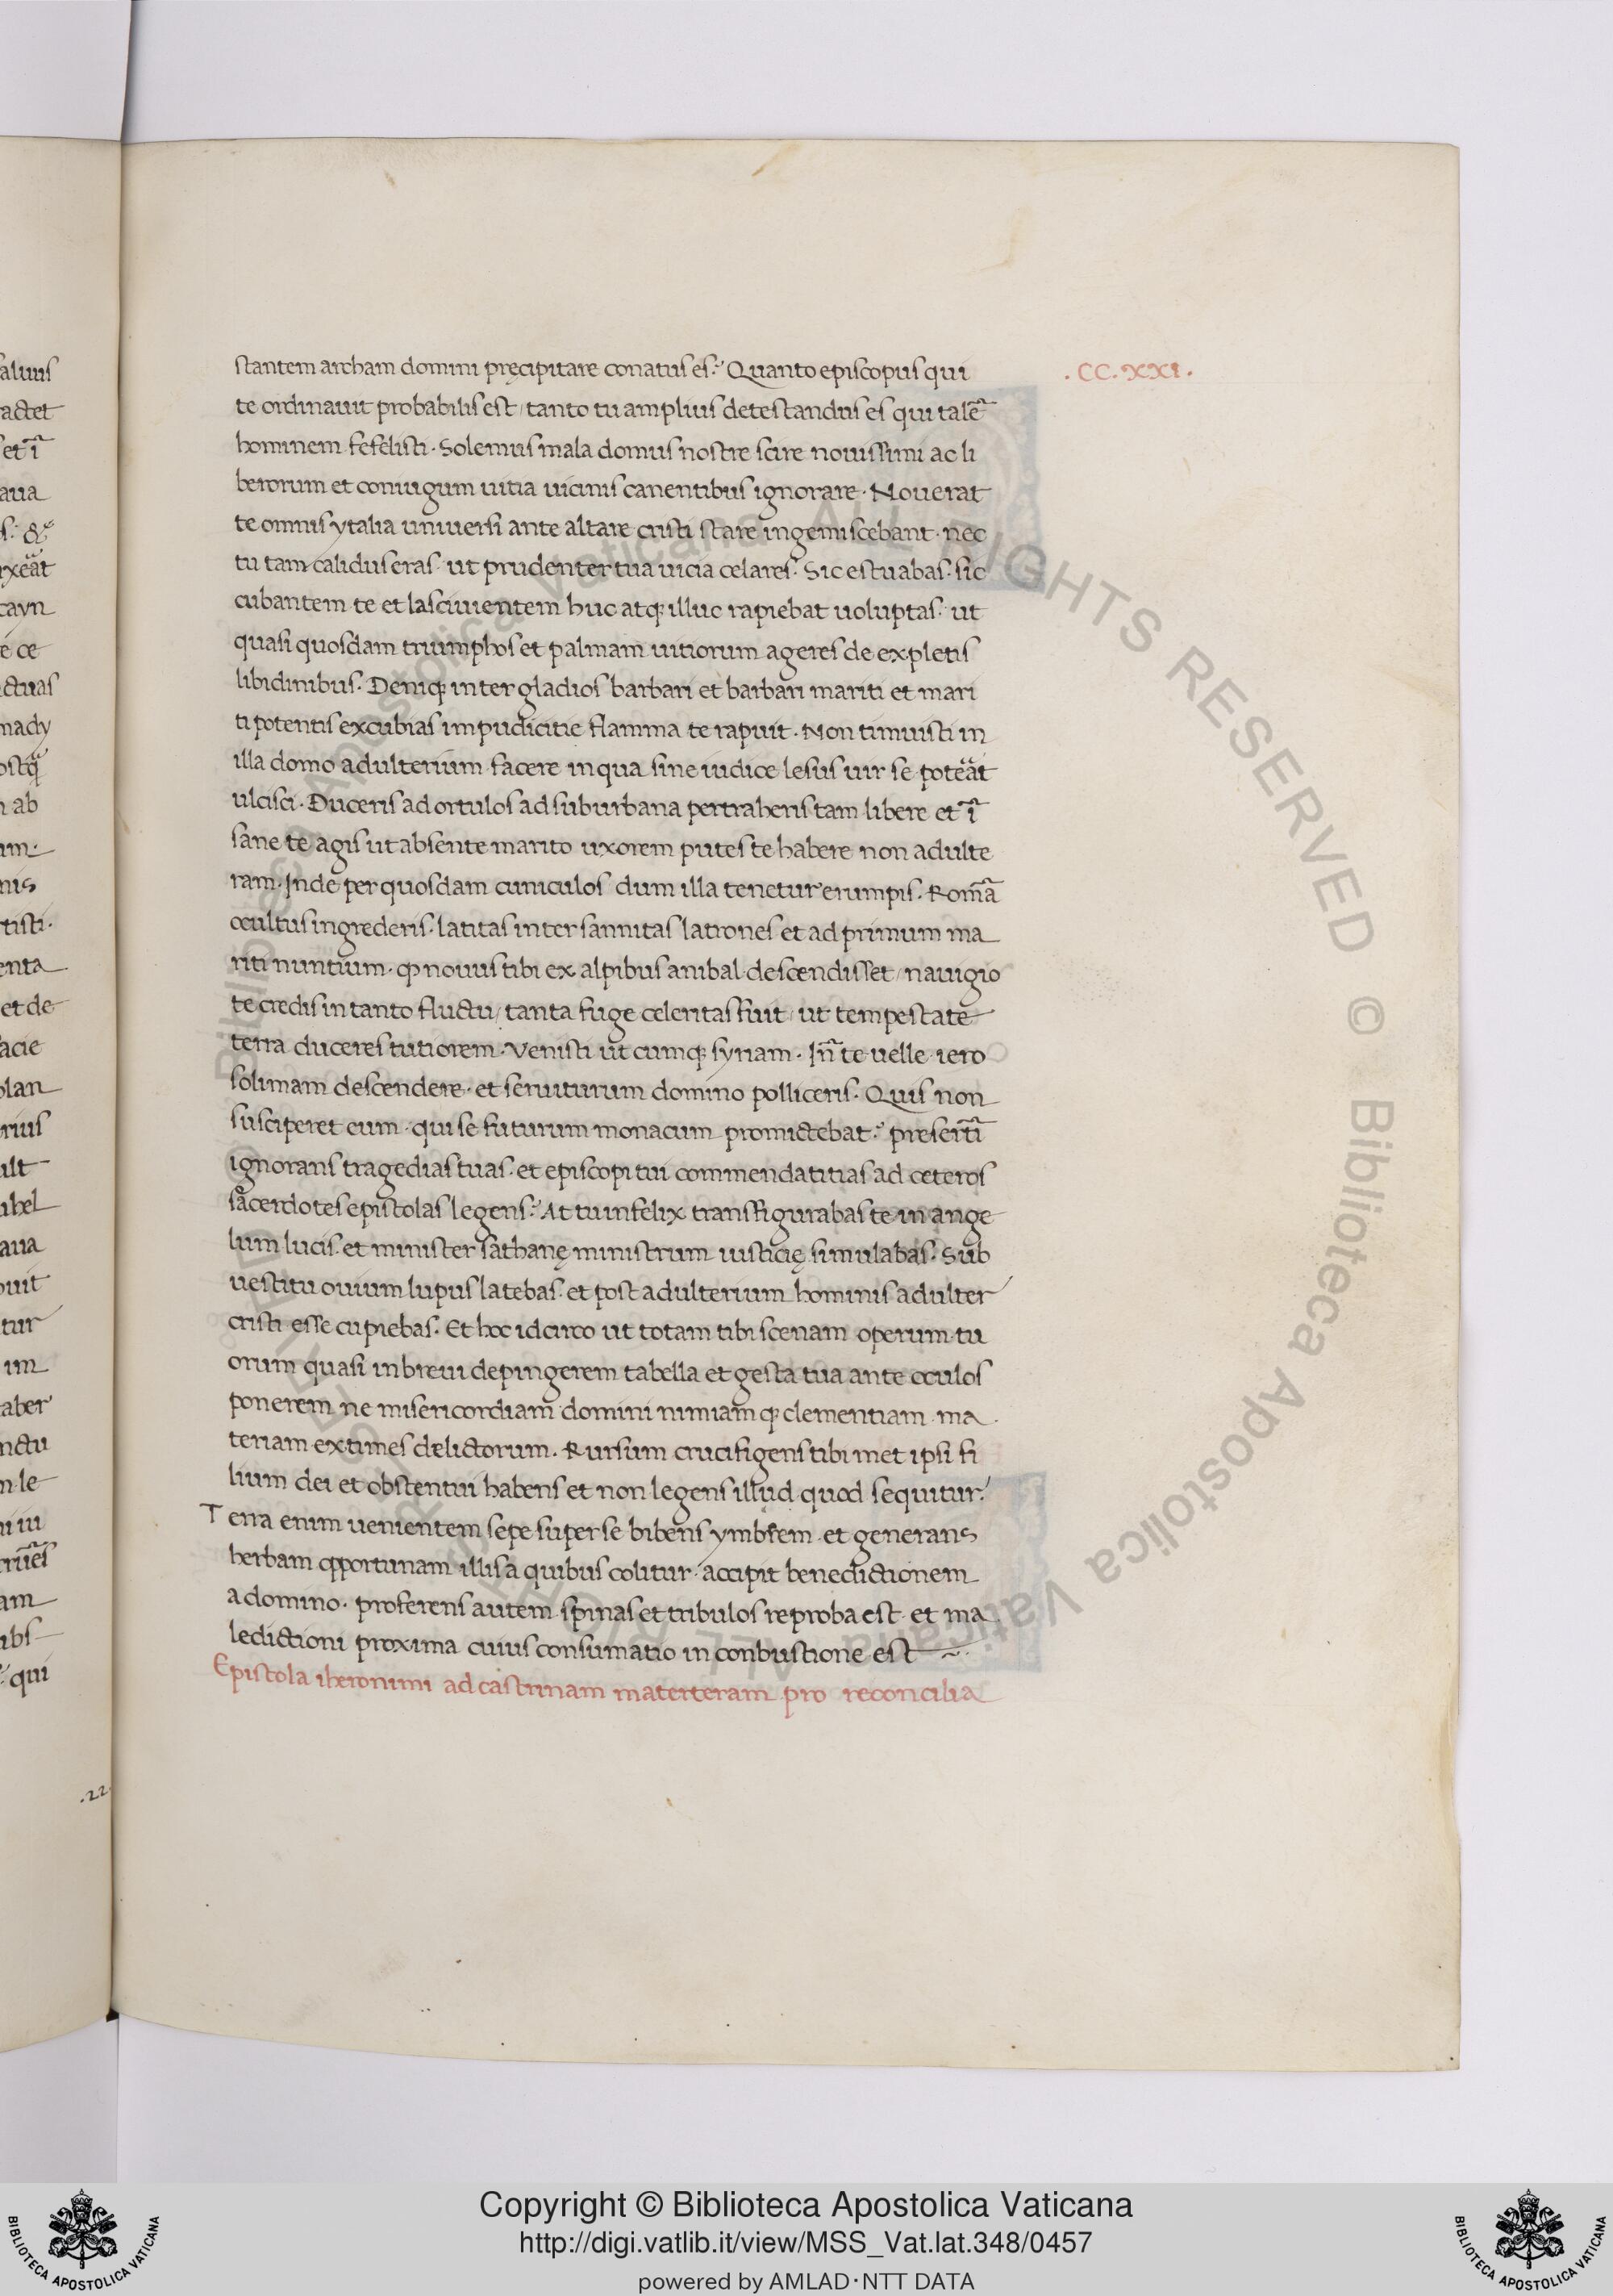 stantem archam domini pręcipitare conatus es? Quanto episcopus qui
.CC.XXI.
te ordinauit probabilis est / tanto tu amplius detestandus es qui talē
hominem fefelisti. Solemus mala domus nostre scire nouissimi ac li
berorum et coniugum uitia uicinis canentibus ignorare. Nouerat
te omnis ytalia uniuersi ante altare cristi stare ingemiscebant. nec
tu tam calidus eras. ut prudenter tua uicia celares. Sic estuabas. sic
cubantem te et lasciuientem huc atq; illuc rapiebat uoluptas. ut
quasi quosdam triumphos et palmam uitiorum ageres de expletis
libidinibus. Deniq; inter gladios barbari et barbari mariti et mari
ti potentis excubias impudicitie flamma te rapuit. Non timuisti in
illa domo adulterium facere in qua sine iudice lesus uir se poterat
ulcisci. Duceris ad ortulos ad suburbana pertraheris tam libere et ī
sane te agis ut absente marito uxorem putes te habere non adulte
ram. Inde per quosdam cuniculos dum illa tenetur erumpis. Romā
occultus ingrederis. latitas inter sannitas latrones et ad primum ma
riti nuntium. ꝙ nouus tibi ex alpibus anibal descendisset / nauigio
te credis in tanto fluctu / tanta fuge celeritas fuit / ut tempestate
terra duceres tutiorem. Venisti ut cumq; syriam. In̄ te uelle iero
solimam descendere. et seruiturum domino polliceris. Quis non
susciperet eum. qui se futurum monacum promictebat? presertī
ignorans tragedias tuas. et episcopi tui commendatitias ad ceteros
sacerdotes epistolas legens? At tu infelix transfigurabas te in ange
lum lucis. et minister sathanę ministrum iusticię simulabas. Sub
uestitu ouium lupus latebas. et post adulterium hominis adulter
cristi esse cupiebas. Et hoc idcirco ut totam tibi scenam operum tu
orum quasi in breui depingerem tabella et gesta tua ante oculos
ponerem ne misericordiam domini nimiamq; clementiam ma
teriam extimes delictorum. Rursum crucifigens tibi met ipsi fi
lium dei et obstentui habens et non legens illud quod sequitur.
Terra enim uenientem sepe super se bibens ymbrem. et generans
herbam opportunam illis a quibus colitur. accipit benedictionem
a domino. proferens autem spinas et tribulos reproba est. et ma
ledictioni proxima cuius consumatio in conbustione est
Epistola iheronimi ad castrinam materteram pro reconcilia
Copyright © Biblioteca Apostolica Vaticana
http://digi.vatlib.it/view/MSS_Vat.lat.348/0457
powered by AMLAD·NTT DATA